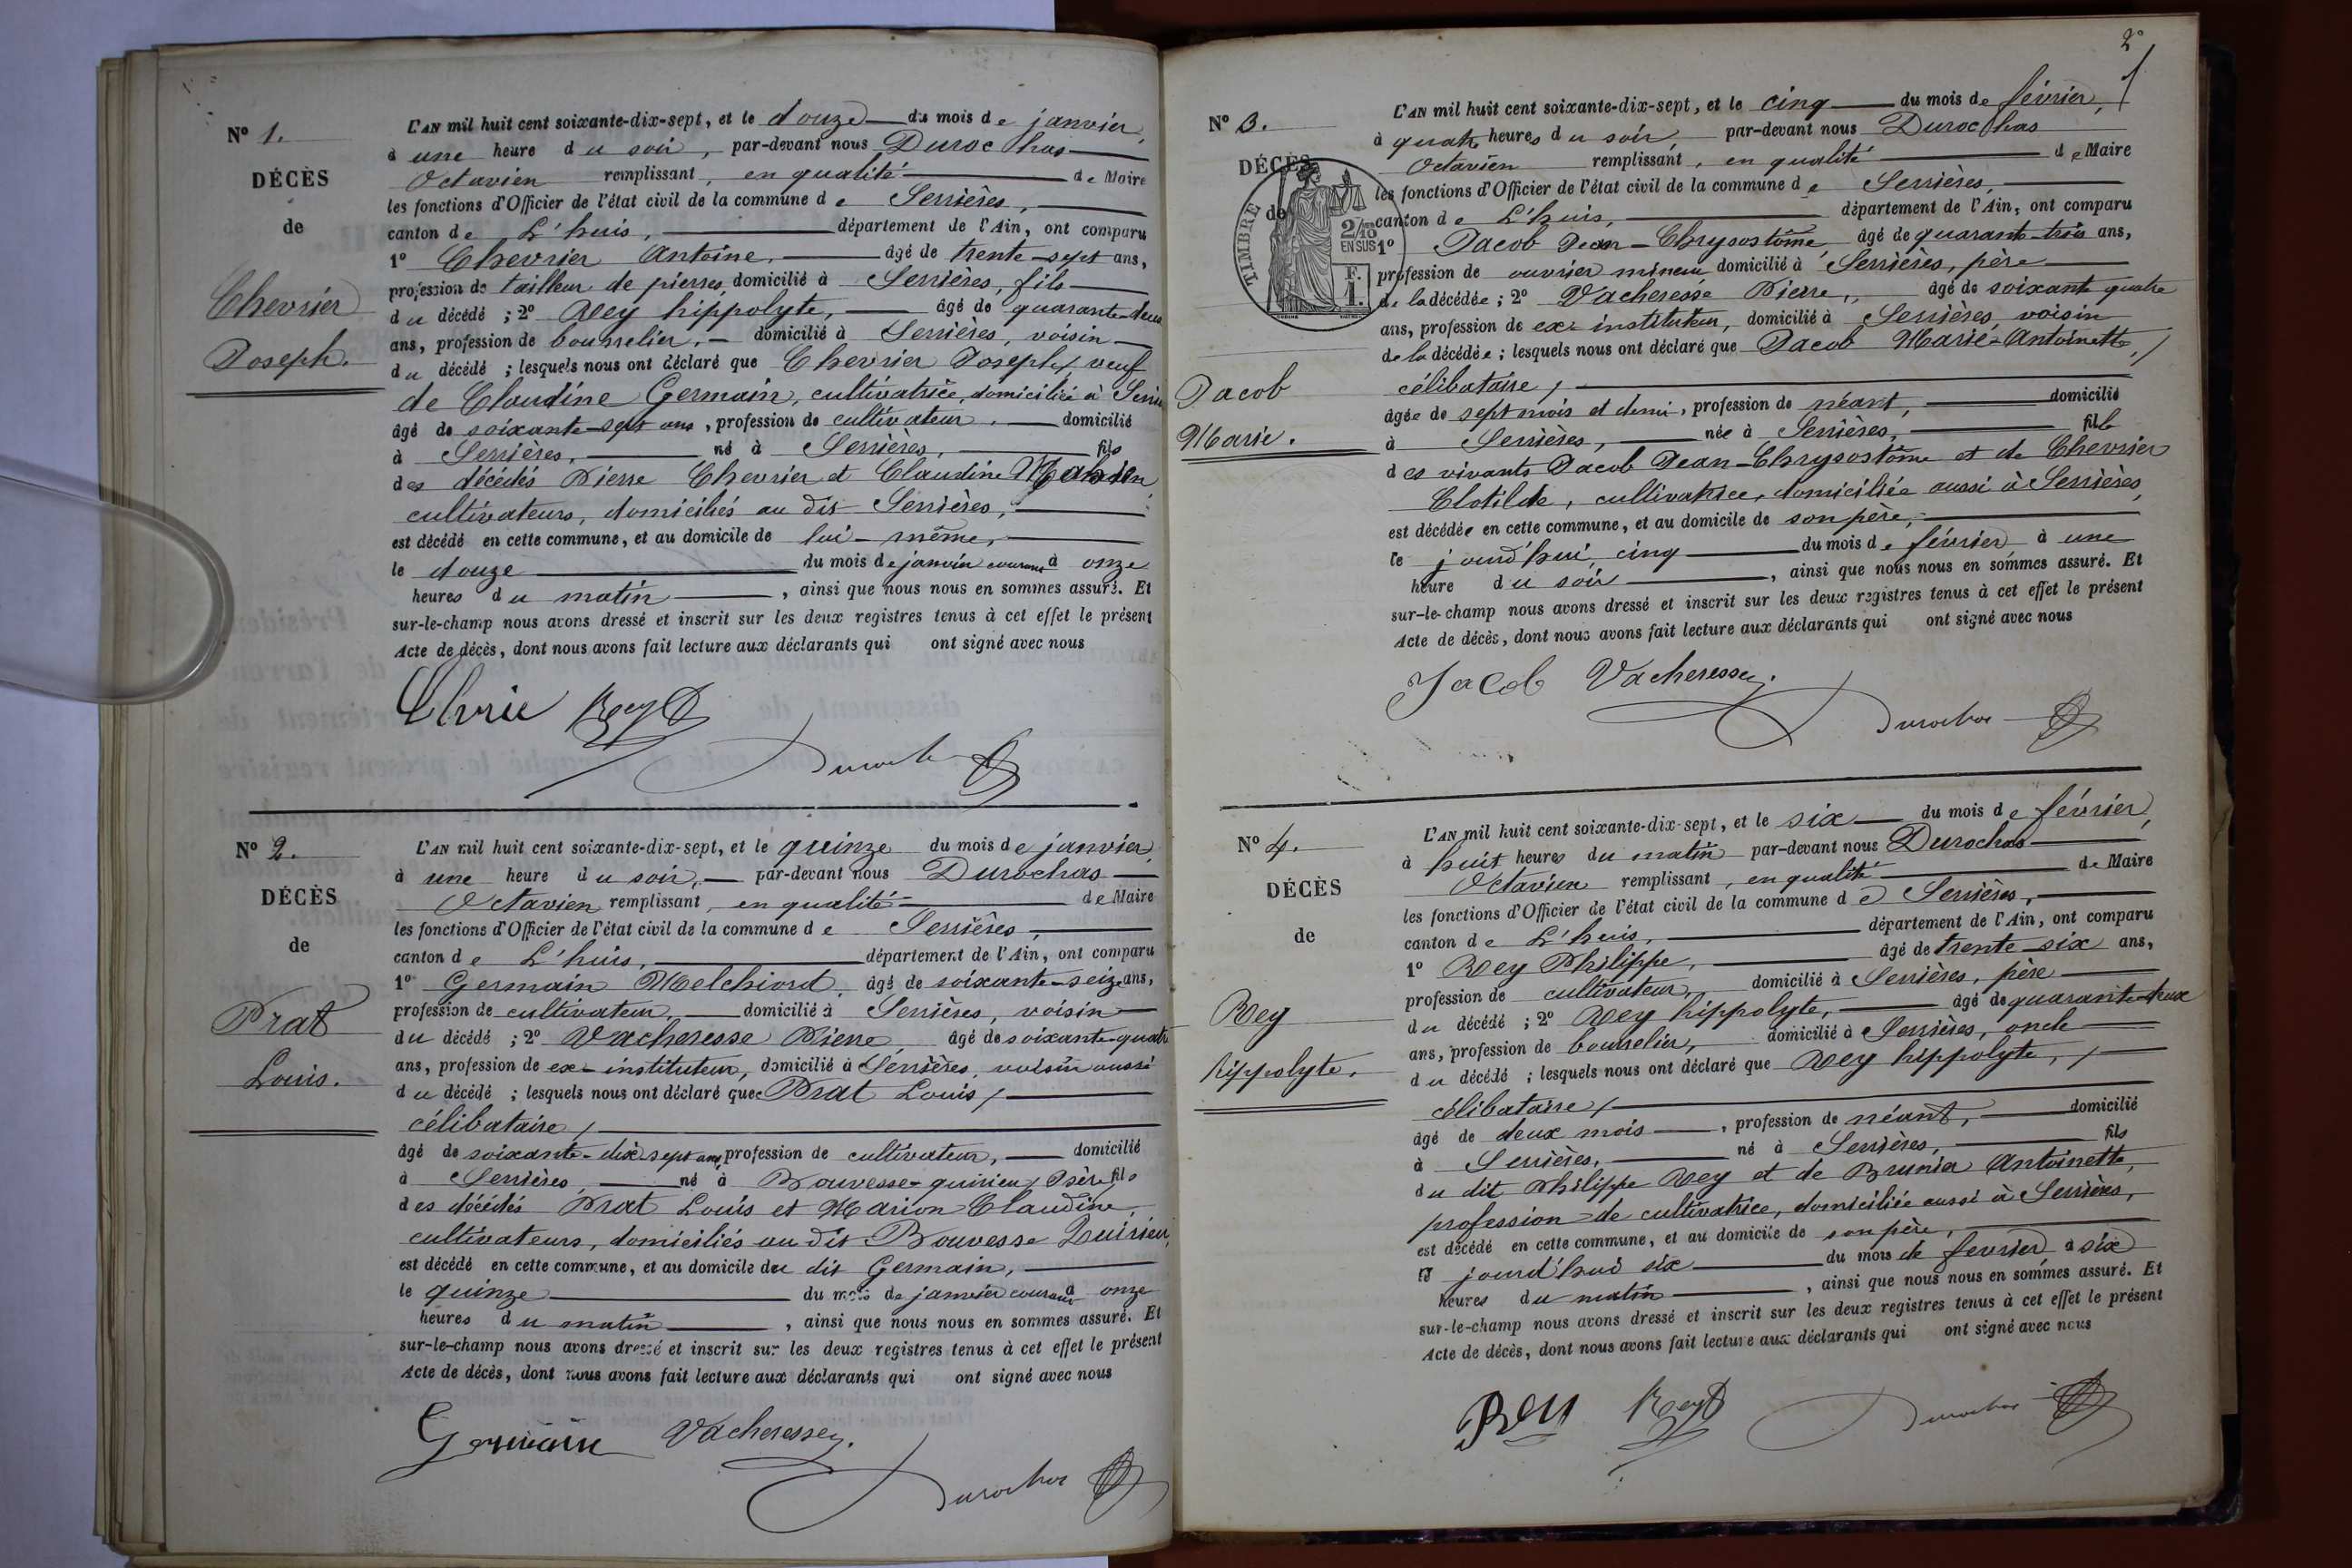 N° 1.
DÉCÈS
de
Chevrier
Joseph.
L'AN mil huit cent soixante-dix-sept, et le douze du mois de janvier,
à une heure du soir, par-devant nous Durochas
Octavien remplissant, en qualité de Maire
les fonctions d'Officier de l'état civil de la commune de Serrières,
canton de L'huis, département de l'Ain, ont comparu
1° Chevrier Antoine, âgé de trente-sept ans,
profession de tailleur de pierres, domicilié à Serrières, fils
du décédé ; 2° Rey hippolyte, âgé de quarante-deux
ans, profession de bourrelier, domicilié à Serrières, voisin
du décédé ; lesquels nous ont déclaré que Chevrier Joseph, veuf
de Claudine Germain, cultivatrice, domiciliée à
âgé de soixante-sept ans, profession de cultivateur, domicilié
à Serrières, né à Serrières, fils
des décédés Pierre Chevrier et Claudine
cultivateurs, domiciliés au dit Serrières,
est décédé en cette commune, et au domicile de lui-même,
le douze du mois de janvier courant à onze
heures du matin, ainsi que nous nous en sommes assuré. Et
sur-le-champ nous avons dressé et inscrit sur les deux registres tenus à cet effet le présent
Acte de décès, dont nous avons fait lecture aux déclarants qui ont signé avec nous
Rey
N° 2.
DÉCÈS
de
Prat
Louis.
L'AN mil huit cent soixante-dix-sept, et le quinze du mois de janvier,
à une heure du soir, par-devant nous Durochas
Octavien remplissant, en qualité de Maire
les fonctions d'Officier de l'état civil de la commune de Serrières,
canton de L'huis, département de l'Ain, ont comparu
1° Germain Melchiord, âgé de soixante-seize ans,
profession de cultivateur, domicilié à Serrières, voisin
du décédé ; 2° Vacheresse Pierre, âgé de soixante-quatre
ans, profession de ex-instituteur, domicilié à Serrières, voisin aussi
du décédé ; lesquels nous ont déclaré que Prat Louis /
célibataire /
âgé de soixante-dix sept ans, profession de cultivateur, domicilié
à Serrières, né à Bouvesse-quirieu, Isère fils
des décédés Prat Louis et Marion Claudine,
cultivateurs, domiciliés au dit Bouvesse Quirieu,
est décédé en cette commune, et au domicile du dit Germain,
le quinze du mois de janvier courant à onze
heures du matin, ainsi que nous nous en sommes assuré. Et
sur-le-champ nous avons dressé et inscrit sur les deux registres tenus à cet effet le présent
Acte de décès, dont nous avons fait lecture aux déclarants qui ont signé avec nous
Germain Vacheresse
Durochas
2e
N° 3.
DÉCÈS
de
TIMBRE
2/10
EN SUS
F.
1.
Jacob
Marie.
L'AN mil huit cent soixante-dix-sept, et le cinq du mois de février,
à quatre heures du soir, par-devant nous Durochas
Octavien remplissant, en qualité de Maire
les fonctions d'Officier de l'état civil de la commune de Serrières,
canton de L'huis, département de l'Ain, ont comparu
1° Jacob Jean-Chrysostôme, âgé de quarante-trois ans,
profession de ouvrier mineur domicilié à Serrières, père
de la décédée ; 2° Vacheresse Pierre, âgé de soixante quatre
ans, profession de ex-instituteur, domicilié à Serrières voisin
de la décédée ; lesquels nous ont déclaré que Jacob Marie-Antoinette /
célibataire /
âgée de sept mois et demi, profession de néant, domicilié
à Serrières, née à Serrières, fille
des vivants Jacob Jean-Chrysostôme et de Chevrier
Clotilde, cultivatrice, domiciliée aussi à Serrières,
est décédée en cette commune, et au domicile de son père,
le jourd'hui cinq du mois de février à une
heure du soir, ainsi que nous nous en sommes assuré. Et
sur-le-champ nous avons dressé et inscrit sur les deux registres tenus à cet effet le présent
Acte de décès, dont nous avons fait lecture aux déclarants qui ont signé avec nous
Jacob Vacheresse
Durochas
N° 4.
DÉCÈS
de
Rey
hippolyte.
L'AN mil huit cent soixante-dix-sept, et le six du mois de février,
à huit heures du matin par-devant nous Durochas
Octavien remplissant, en qualité de Maire
les fonctions d'Officier de l'état civil de la commune de Serrières,
canton de L'huis, département de l'Ain, ont comparu
1° Rey Philippe, âgé de trente-six ans,
profession de cultivateur, domicilié à Serrières, père
du décédé ; 2° Rey hippolyte, âgé de quarante-deux
ans, profession de bourrelier, domicilié à Serrières, oncle
du décédé ; lesquels nous ont déclaré que Rey hippolyte, /
célibataire /
âgé de deux mois, profession de néant, domicilié
à Serrières, né à Serrières, fils
du dit Philippe Rey et de Brunier Antoinette,
profession de cultivatrice, domiciliée aussi à Serrières,
est décédé en cette commune, et au domicile de son père,
le jourd'hui six du mois de fevrier à six
heures du matin, ainsi que nous nous en sommes assuré. Et
sur-le-champ nous avons dressé et inscrit sur les deux registres tenus à cet effet le présent
Acte de décès, dont nous avons fait lecture aux déclarants qui ont signé avec nous
Rey Rey
Durochas